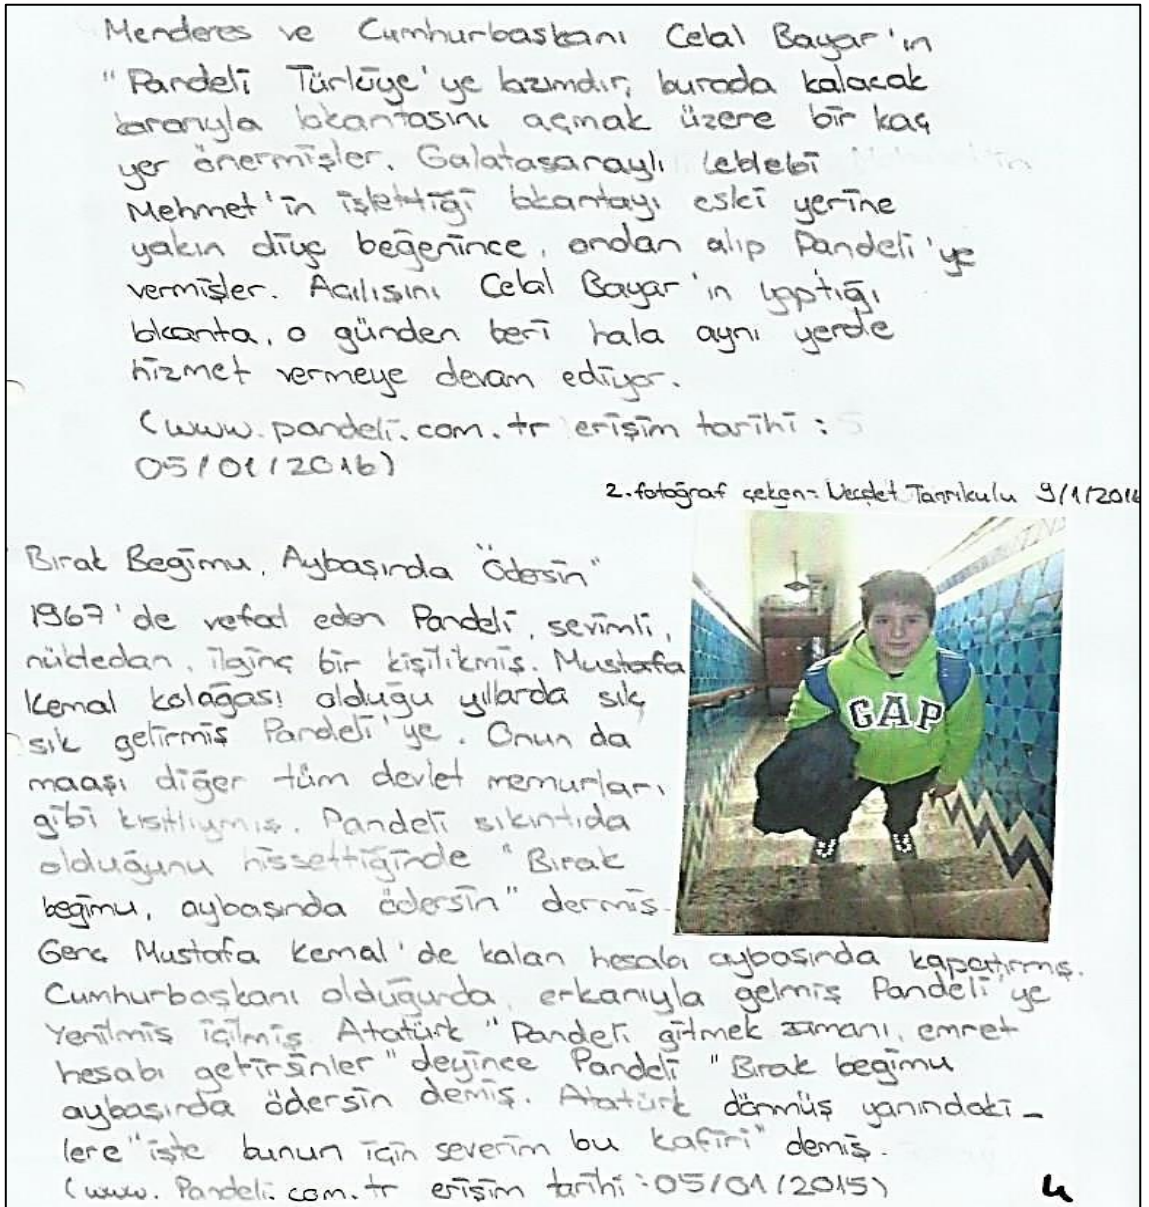 Menderes ve Cumhurbaşkanı Celal Bayar'ın
"Pandeli Türkiye'ye lazımdır, burada kalacak
kararıyla lokantasını açmak üzere bir kaç
yer önermişler. Galatasaraylı Leblebi
Mehmet'in işlettiği lokantayı eski yerine
yakın diye beğenince, ondan alıp Pandeli'ye
vermişler. Açılışını Celal Bayar'ın yaptığı
lokanta, o günden beri hala aynı yerde
hizmet vermeye devam ediyor.
(www.pandeli.com.tr erişim tarihi:
05/01/2016)
2.fotoğraf çeken: Vecdet Tanrıkulu 9/1/2016
Bırak Begimu, Aybaşında "Ödesin"
1967'de vefad eden Pandeli, sevimli,
nüktedan, ilginç bir kişilikmiş. Mustafa
Kemal kolağası olduğu yıllarda sık
sık gelirmiş Pandeli'ye. Onun da
maaşı diğer tüm devlet memurları
gibi kısıtlıymış. Pandeli sıkıntıda
olduğunu hissettiğinde "Bırak
beğimu, aybaşında ödersin" dermiş.
GAP
Genç Mustafa Kemal'de kalan hesabı aybaşında kapatırmış.
Cumhurbaşkanı olduğunda, erkanıyla gelmiş Pandeli'ye
Yenilmiş içilmiş Atatürk "Pandeli gitmek zamanı, emret
hesabı getirsinler" deyince Pandeli "Bırak begimu
aybaşında ödersin demiş. Atatürk dönmüş yanındaki-
lere "işte bunun için severim bu kafiri" demiş.
(www.Pandeli.com.tr erişim tarihi:05/01/2015)
4